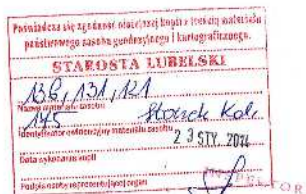 Poświadcza się zgodność niniejszej kopii z treścią materiału
państwowego zasobu geodezyjnego i kartograficznego.
STAROSTA LUBELSKI
138, 131, 121
Nazwa materiału zasobu
145
Identyfikator ewidencyjny materiału zasobu
23 STY. 2014
Data wykonania kopii
Podpis osoby reprezentującej organ